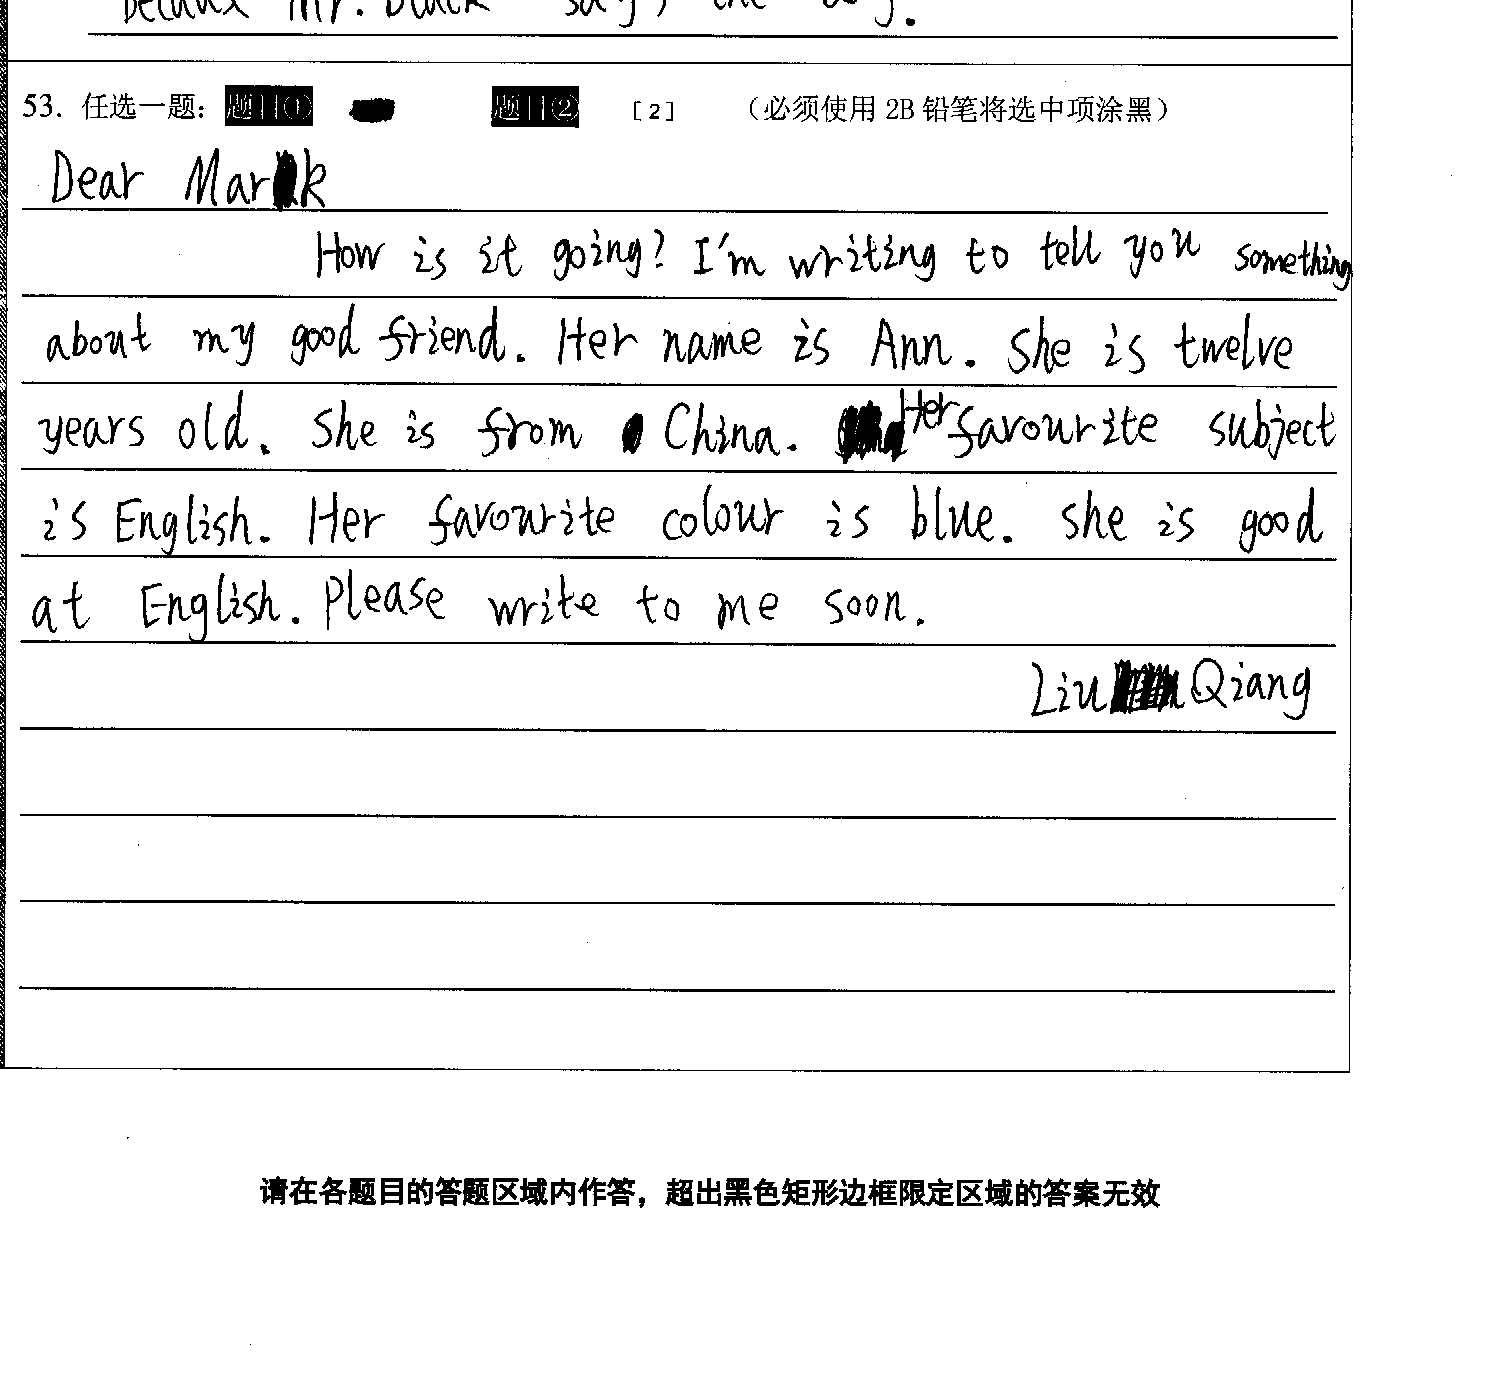 Mr. Black say, the
53. 任选一题: 题目① 题目② [2] (必须使用 2B 铅笔将选中项涂黑)
Dear Mark
How is it going? I'm writing to tell you something
about my good friend. Her name is Ann. She is twelve
years old. She is from China. Her favourite subject
is English. Her favourite colour is blue. She is good
at English. Please write to me soon.
Liu Qiang
请在各题目的答题区域内作答，超出黑色矩形边框限定区域的答案无效